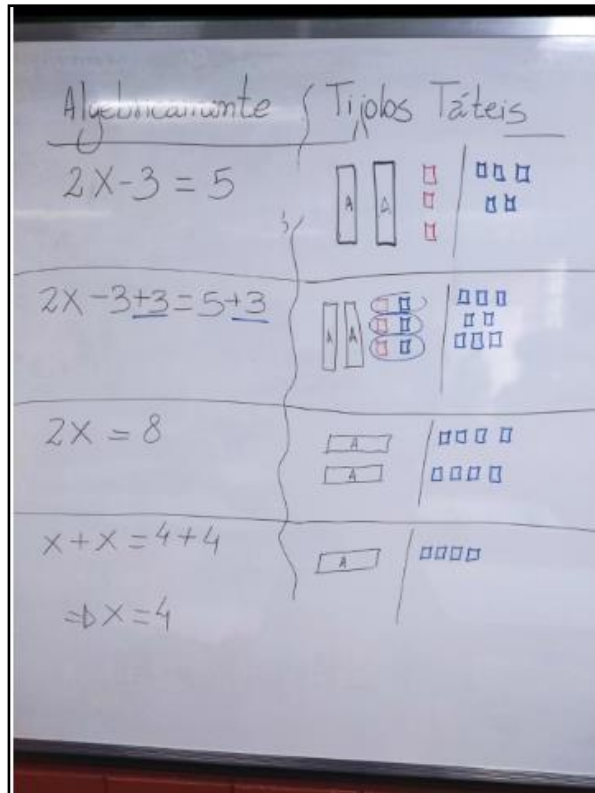 Algebricamente Tijolos Táteis
2X-3=5 A A
2X-3+3=5+3 A A
2X=8 A
A
X+X=4+4 A
⇒X=4